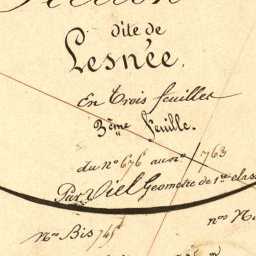 Section
dite de
Lesnée.
En Trois feuilles
3ème feuille.
du nº 676 au nº 763
Par Viel Geometre de 1re class
nos
nº Bis 745